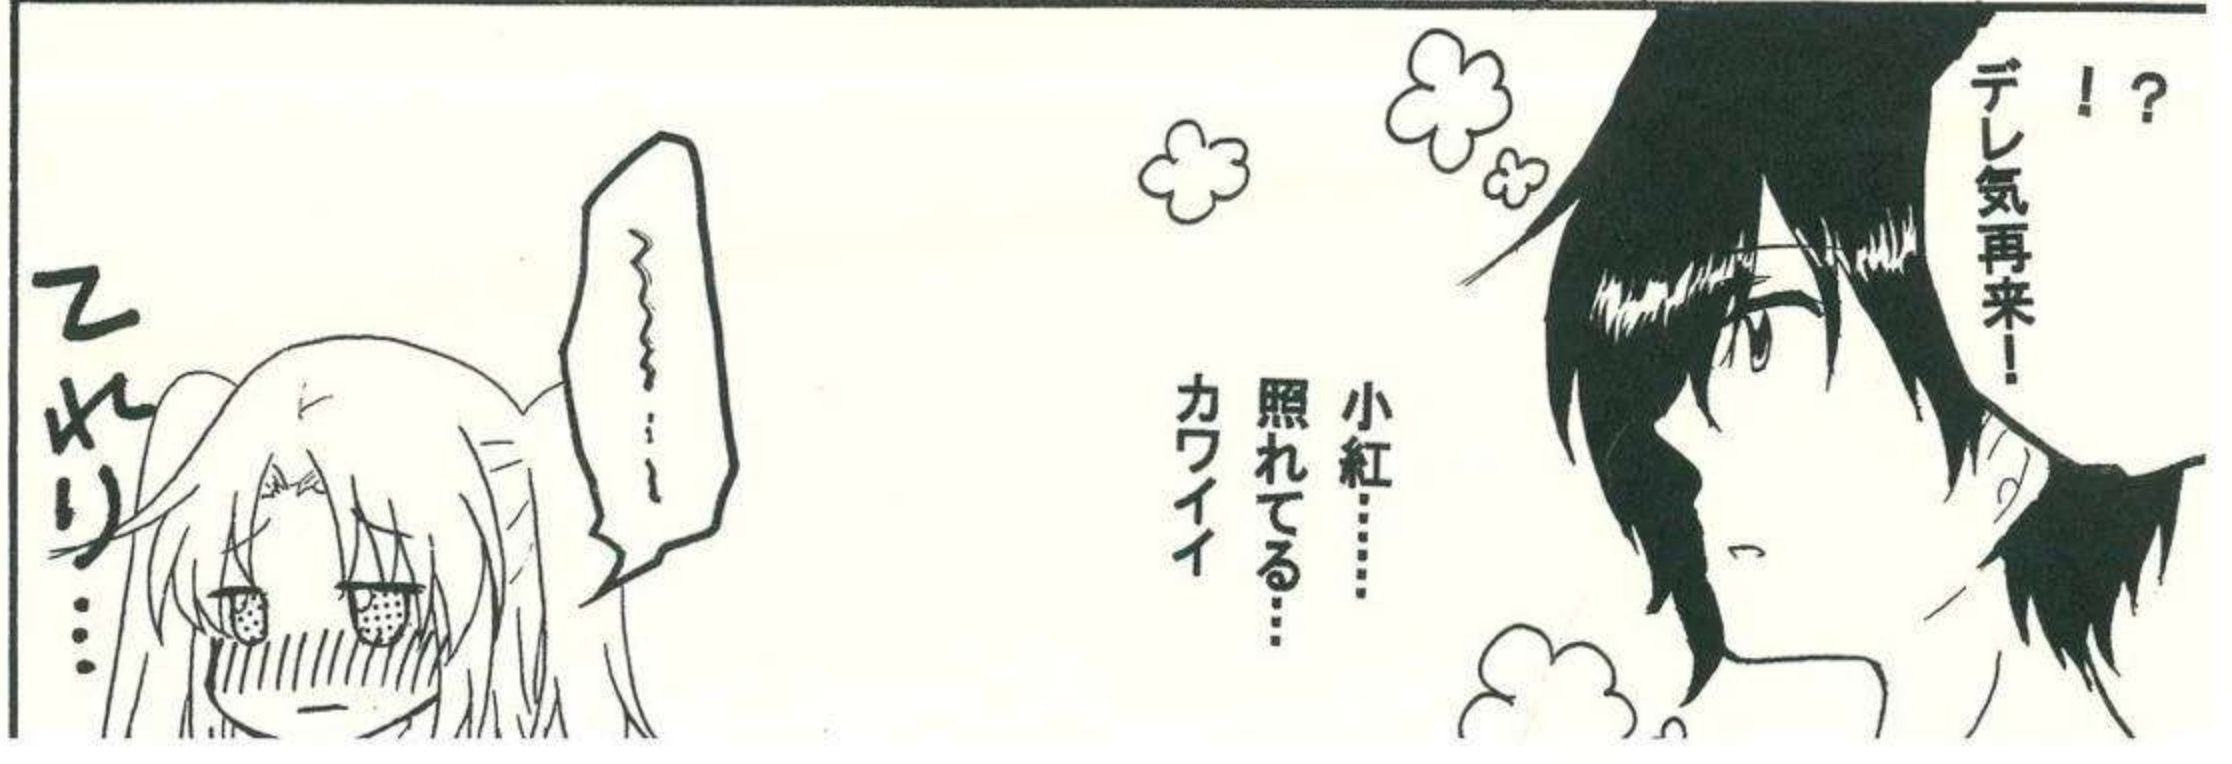 ?
!
デレ気再来!
小紅……
照れてる…
カワイイ
~~~~……~
てれり…